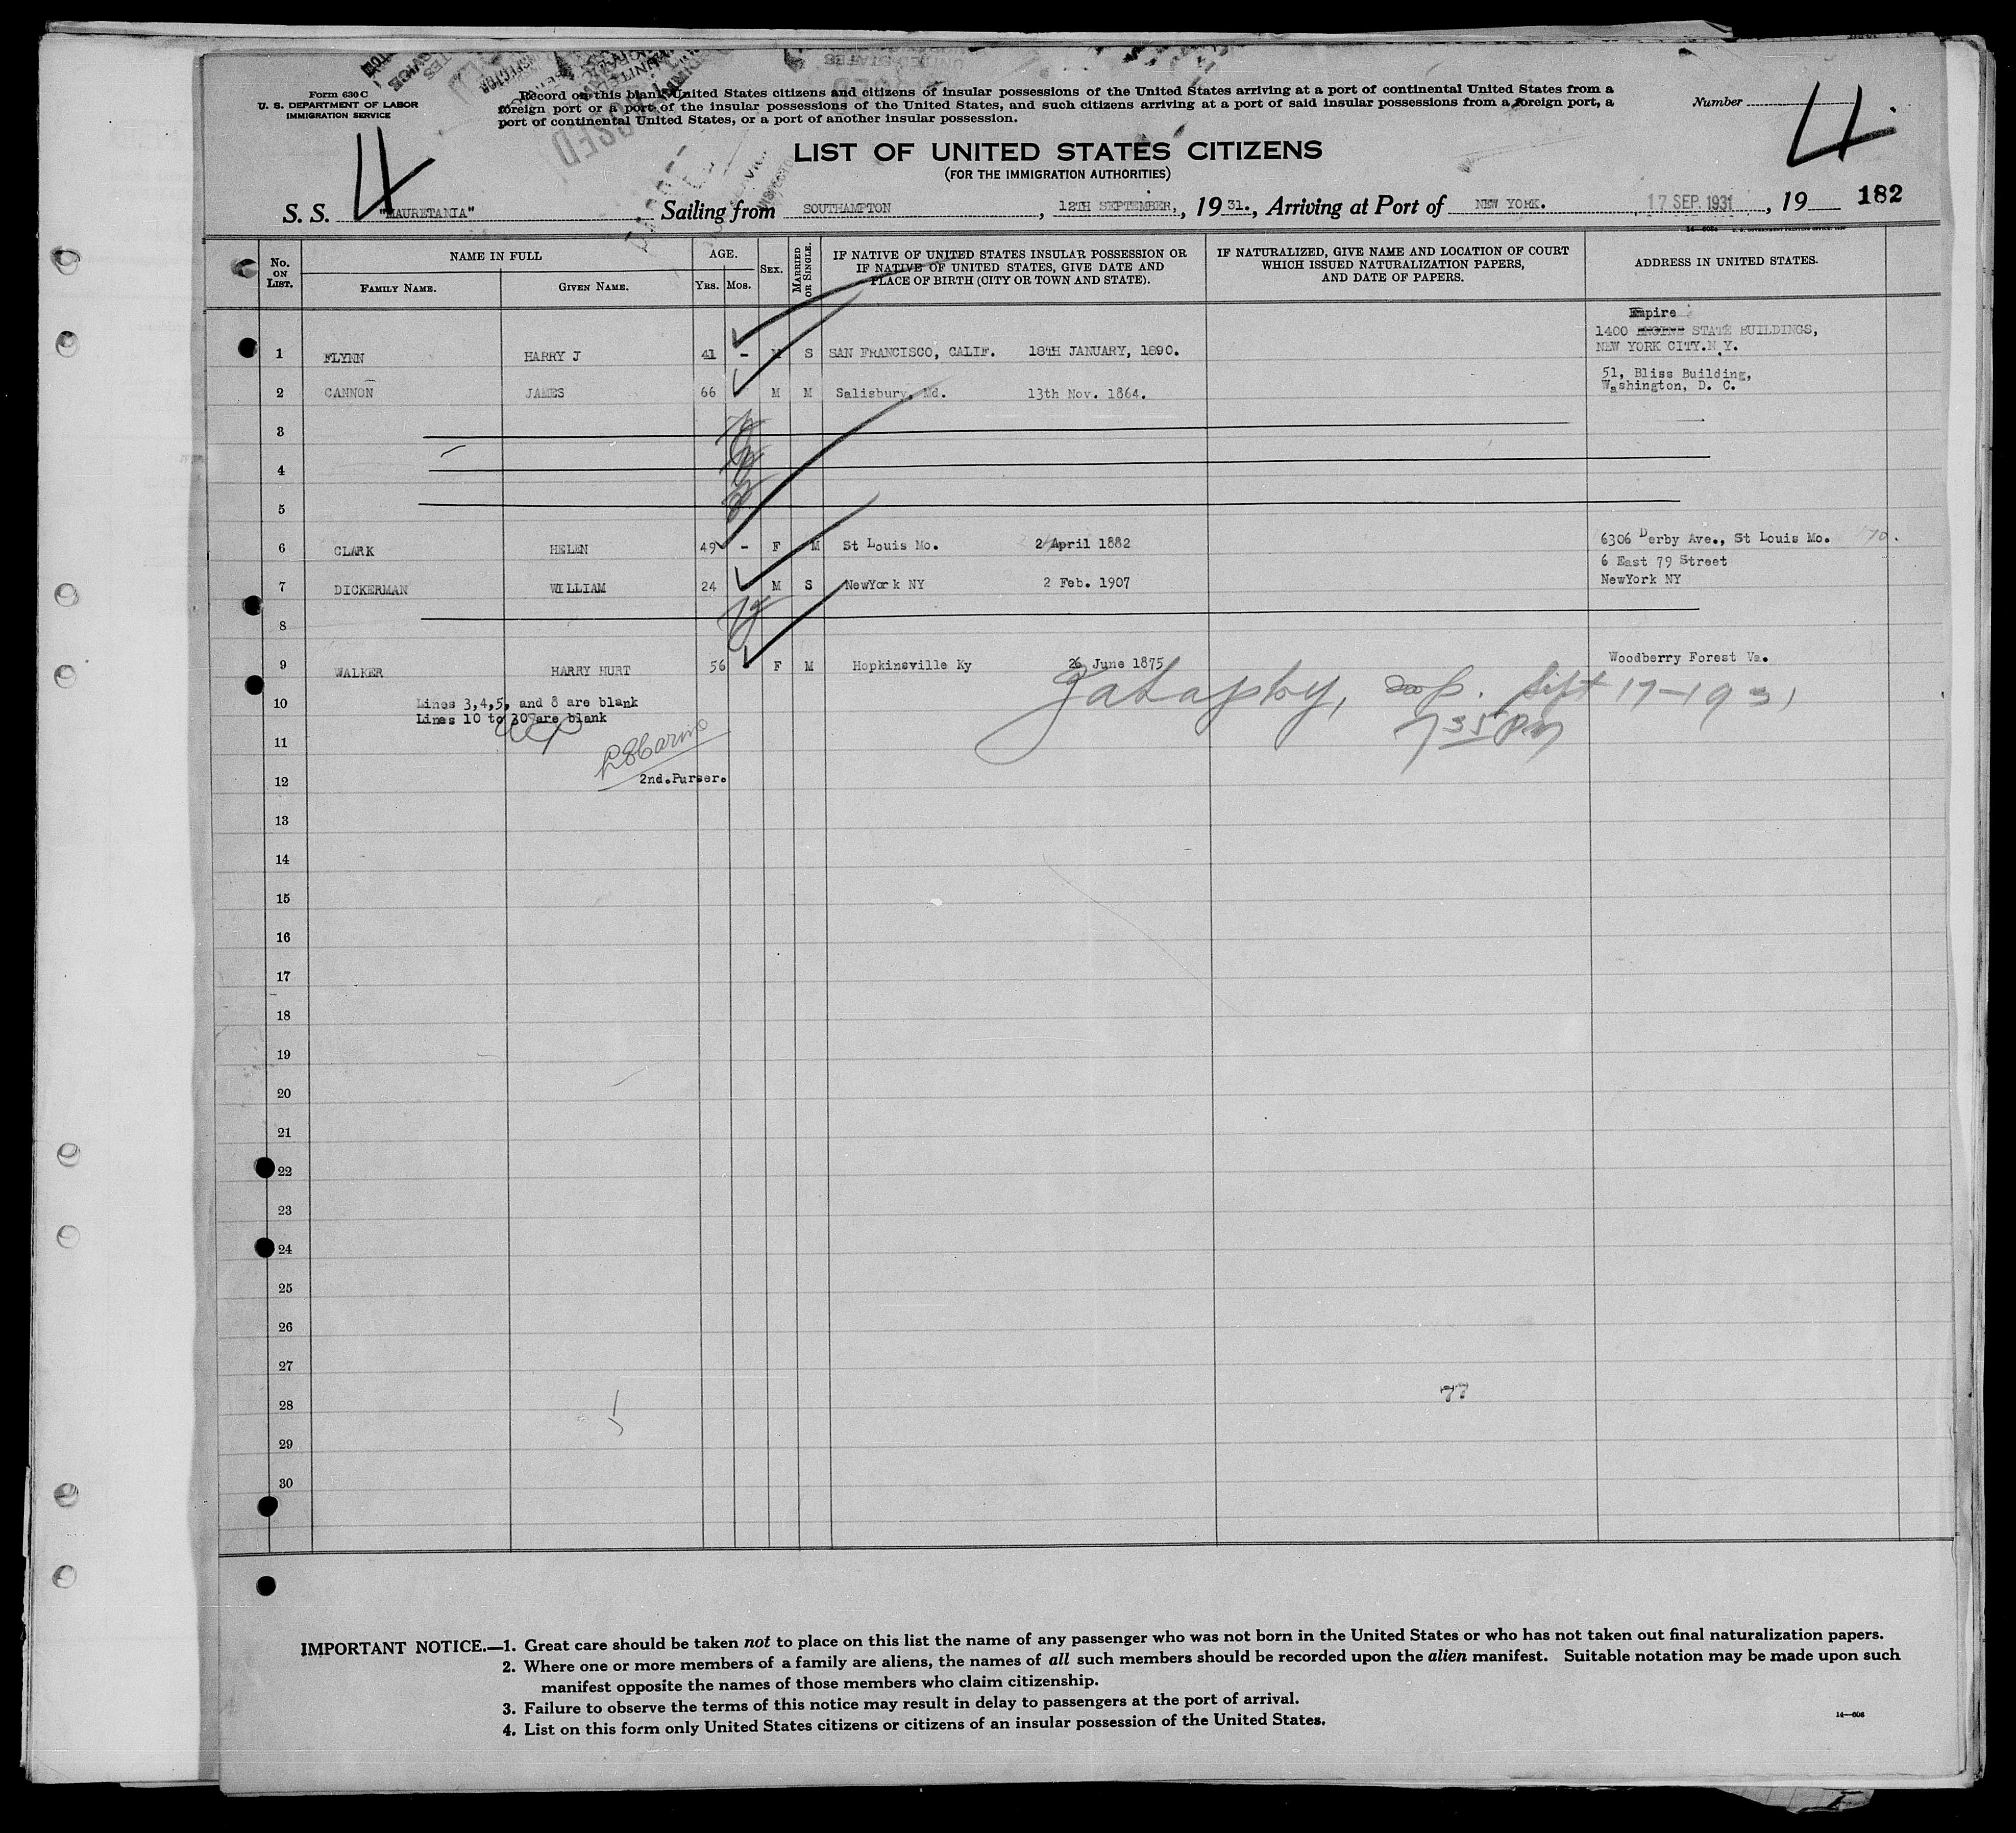 Form 630 C
U. S. DEPARTMENT OF LABOR
IMMIGRATION SERVICE
Record on this blank United States citizens and citizens of insular possessions of the United States arriving at a port of continental United States from a
foreign port or a port of the insular possessions of the United States, and such citizens arriving at a port of said insular possessions from a foreign port, a
port of continental United States, or a port of another insular possession.
Number
4
4
LIST OF UNITED STATES CITIZENS
(FOR THE IMMIGRATION AUTHORITIES)
S. S. "MAURETANIA" Sailing from SOUTHAMPTON, 12TH SEPTEMBER, 1931., Arriving at Port of NEW YORK. 17 SEP. 1931, 19 182
No. ON LIST.
NAME IN FULL
FAMILY NAME. GIVEN NAME.
AGE.
YRS. MOS.
SEX.
MARRIED OR SINGLE.
IF NATIVE OF UNITED STATES INSULAR POSSESSION OR
IF NATIVE OF UNITED STATES, GIVE DATE AND
PLACE OF BIRTH (CITY OR TOWN AND STATE).
IF NATURALIZED, GIVE NAME AND LOCATION OF COURT
WHICH ISSUED NATURALIZATION PAPERS,
AND DATE OF PAPERS.
ADDRESS IN UNITED STATES.
Empire
1400 ENGINE STATE BUILDINGS,
1 FLYNN HARRY J 41 - M S SAN FRANCISCO, CALIF. 18TH JANUARY, 1890. NEW YORK CITY.N.Y.
51, Bliss Building,
2 CANNON JAMES 66 M M Salisbury, Md. 13th Nov. 1864. Washington, D. C.
3
4
5
6 CLARK HELEN 49 - F M St Louis Mo. 2 April 1882 6306 Derby Ave., St Louis Mo.
6 East 79 Street
7 DICKERMAN WILLIAM 24 M S NewYork NY 2 Feb. 1907 NewYork NY
8
9 WALKER HARRY HURT 56 F M Hopkinsville Ky 26 June 1875 Woodberry Forest Va.
10 Lines 3,4,5, and 8 are blank
Lines 10 to 30 are blank
Sept 17-1931
7 35 PM
11
12 2nd.Purser.
13
14
15
16
17
18
19
20
21
22
23
24
25
26
27
77
28
29
30
IMPORTANT NOTICE.—1. Great care should be taken not to place on this list the name of any passenger who was not born in the United States or who has not taken out final naturalization papers.
2. Where one or more members of a family are aliens, the names of all such members should be recorded upon the alien manifest. Suitable notation may be made upon such
manifest opposite the names of those members who claim citizenship.
3. Failure to observe the terms of this notice may result in delay to passengers at the port of arrival.
4. List on this form only United States citizens or citizens of an insular possession of the United States.